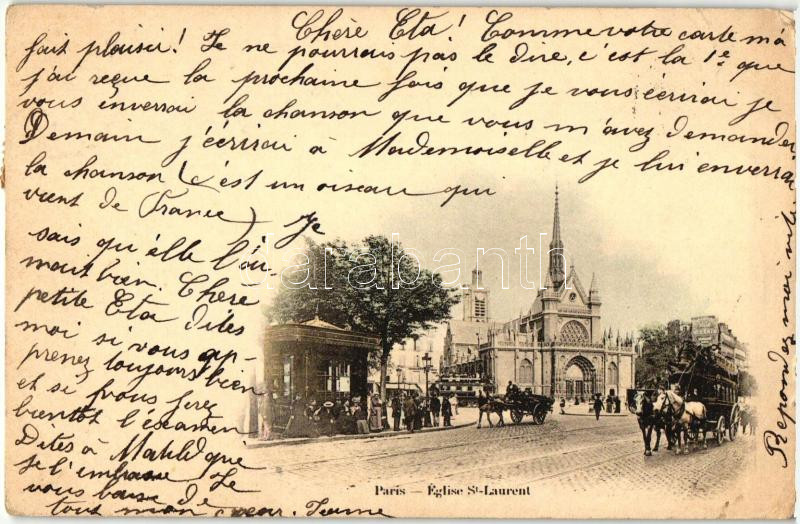 Chère Eta! Comme votre carte m'a
fait plaisir! Je ne pourrais pas le dire, c'est la 1e que
j'ai reçue la prochaine fois que je vous écrirai je
vous inverrai la chanson que vous m'avez demander
Demain j'écrirai à Mademoiselle et je lui enverrai
la chanson (c'est un oiseau qui
vient de France) Je
sais qu'elle l'ai-
mait bien. Chère
petite Eta dites
moi si vous ap-
prenez toujours bien
et si vous ferez
bientôt l'éxamen
Dites à Mathild que
je l'embrasse Je
vous baise de
tout mon cœur. Jeanne
Repondez moi vite
darabanth
Paris — Église St-Laurent